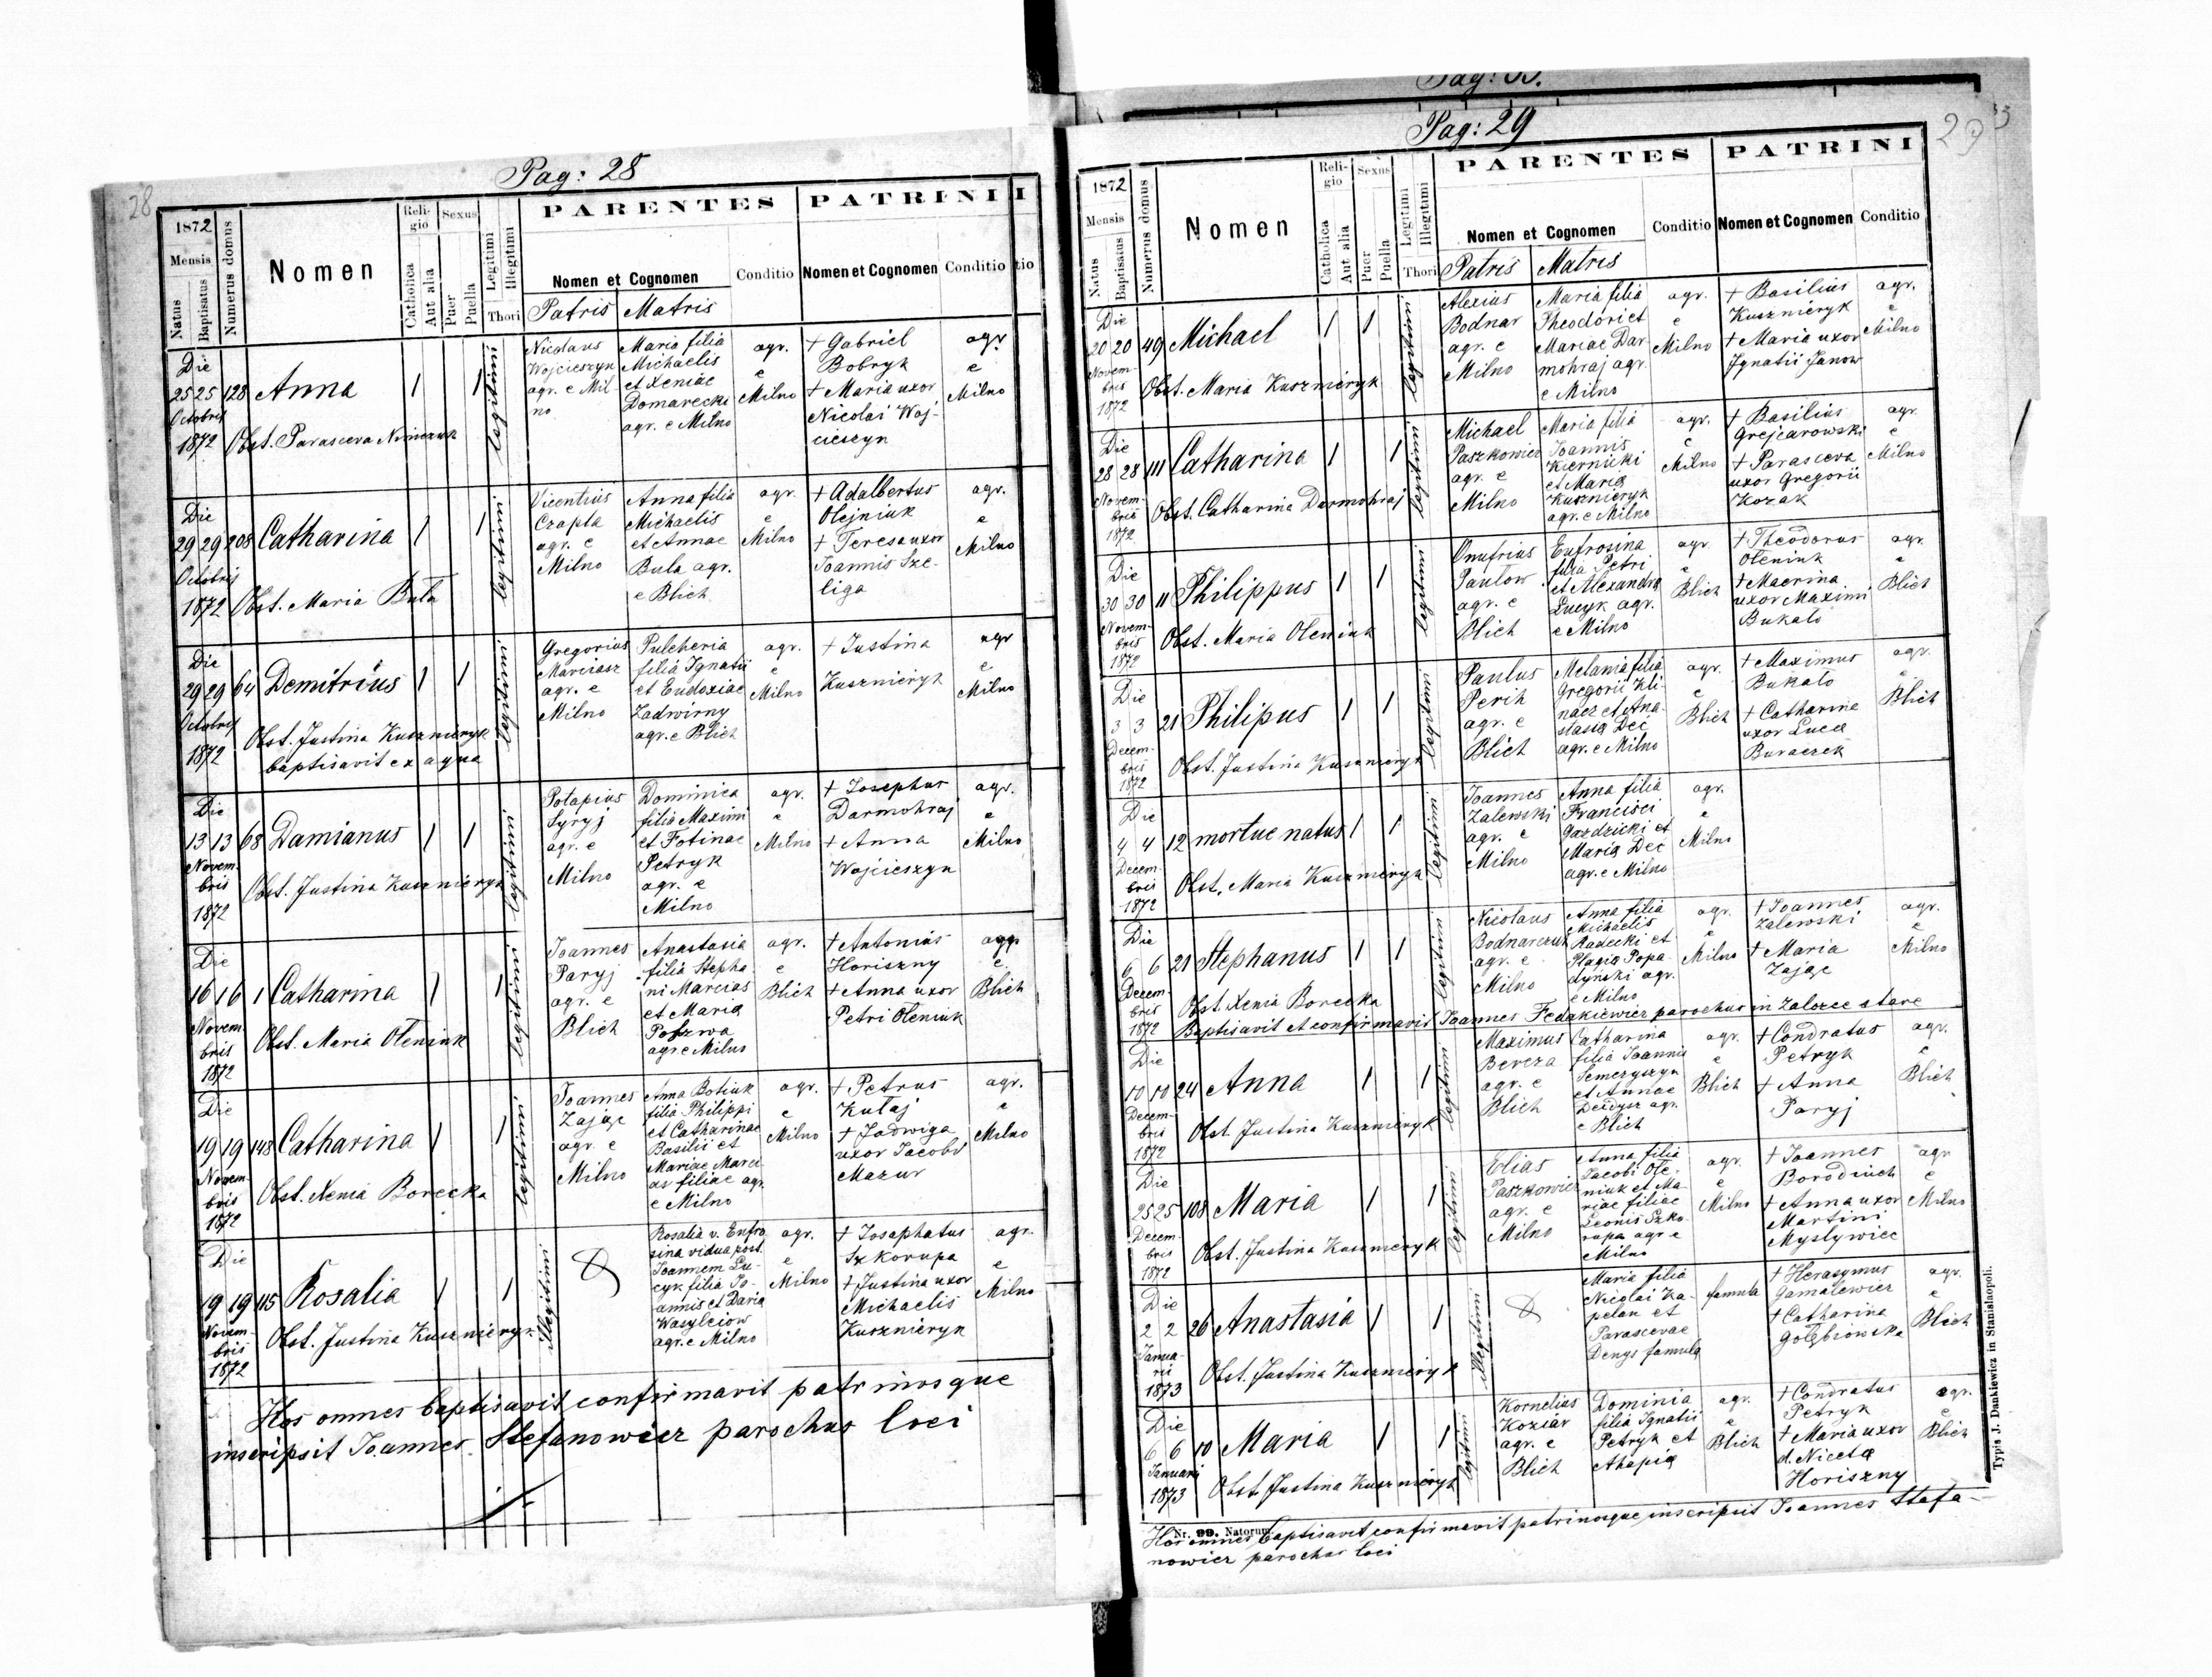 Pag: 28
28
1872
Mensis
Natus
Baptisatus
Numerus domus
Nomen
Reli-
gio
Catholica
Aut alia
Sexus
Puer
Puella
Legitimi
Illegitimi
Thori
PARENTES
Nomen et Cognomen
Patris
Matris
Conditio
PATRINI
Nomen et Cognomen
Conditio
Die
25 25 128 Anna
Octobris
1872
Obst. Parasceva
legitimi
Nicolaus
Wojcieszyn
agr. e Mil-
no
Maria filia
Michaelis
et Xeniae
Domarecki
agr. e Milno
agr.
e
Milno
+ Gabriel
Bobryk
+ Maria uxor
Nicolai Woj-
cieszyn
agr
e
Milno
Die
29 29 208 Catharina
Octobris
1872
Obst. Maria Buła
legitimi
Vicentius
Czapla
agr. e
Milno
Anna filia
Michaelis
et Annae
Bula agr.
e Blich
agr.
e
Milno
+ Adalbertus
Olejniuk
+ Teresa uxor
Joannis Sze-
liga
agr.
e
Milno
Die
29 29 64 Demitrius
Octobris
1872
Obst. Justina Kusznieryk
baptisavit ex aqua
legitimi
Gregorius
Marciasz
agr. e
Milno
Pulcheria
filia Ignatii
et Eudoxiae
Zadwirny
agr. e Blich
agr.
e
Milno
+ Justina
Kusznieryk
agr
e
Milno
Die
13 13 68 Damianus
Novem
bris
1872
Obst. Justina Kusznieryk
legitimi
Potapius
Syryj
agr. e
Milno
Dominica
filia Maximi
et Fotinae
Petryk
agr. e
Milno
agr.
e
Milno
+ Josephus
Darmohraj
+ Anna
Wojcieszyn
agr.
e
Milno
Die
16 16 1 Catharina
Novem
bris
1872
Obst. Maria Oleniuk
legitimi
Joannes
Paryj
agr. e
Blich
Anastasia
filia Stepha
ni Marcias
et Maria
agr e Milno
agr.
e
Blich
+ Antonius
Horiszny
+ Anna uxor
Petri Oleniuk
agr
e
Blich
Die
19 19 148 Catharina
Novem
bris
1872
Obst. Xenia Borecka
legitimi
Joannes
Zając
agr. e
Milno
Anna Botiuk
filia Philippi
et Catharinae
Basilii et
Mariae Marci
as filiae agr.
e Milno
agr.
e
Milno
+ Petrus
Kułaj
+ Jadwiga
uxor Jacobi
Mazur
agr.
e
Milno
Die
19 19 115 Rosalia
Novem-
bris
1872
Obst. Justina Kusznieryk
illegitimi
Rosalia v. Eufro
sina vidua post
Joannem Lu-
cyk filia Jo-
annis et Daria
Wasylciow
agr. e Milno
agr.
e
Milno
+ Josaphatus
Szkorupa
+ Justina uxor
Michaelis
Kusznieryk
agr.
e
Milno
Hos omnes baptisavit confirmavit patrinosque
inscripsit Joannes Stefanowicz parochus loci
Pag: 29
29
1872
Mensis
Natus
Baptisatus
Numerus domus
Nomen
Reli-
gio
Catholica
Aut alia
Sexus
Puer
Puella
Legitimi
Illegitimi
Thori
PARENTES
Nomen et Cognomen
Patris
Matris
Conditio
PATRINI
Nomen et Cognomen
Conditio
Die
20 20 49 Michael
Novem-
bris
1872
Obst. Maria Kusznieryk
legitimi
Alexius
Bodnar
agr. e
Milno
Maria filia
Theodori et
Mariae Dar
mohraj agr.
e Milno
agr.
e
Milno
+ Basilius
Kusznieryk
+ Maria uxor
Ignatii Janow
agr.
e
Milno
Die
28 28 111 Catharina
Novem-
bris
1872
Obst. Catharina Darmohraj
legitimi
Michael
Paszkowicz
agr. e
Milno
Maria filia
Joannis
Kiernicki
et Maria
Kusznieryk
agr. e Milno
agr.
e
Milno
+ Basilius
Grejcarowski
+ Parasceva
uxor Gregorii
Kozak
agr.
e
Milno
Die
30 30 11 Philippus
Novem-
bris
1872
Obst. Maria Oleniuk
legitimi
Onufrius
Pawlow
agr. e
Blich
Eufrosina
filia Petri
et Alexandra
Lucyk agr.
e Milno
agr
e
Blich
+ Theodorus
Oleniuk
+ Macrina
uxor Maximi
Bukało
agr
e
Blich
Die
3 3 21 Philipus
Decem-
bris
1872
Obst. Justina Kusznieryk
legitimi
Paulus
Perih
agr. e
Blich
Melania filia
Gregorii Kli-
nacz et Ana-
stasia Dec
agr. e Milno
agr.
e
Blich
+ Maximus
Bukało
+ Catharina
uxor Luca
Buraczek
agr.
e
Blich
Die
4 4 12 mortue natus
Decem-
bris
1872
Obst. Maria Kusznieryk
legitimi
Joannes
Zalewski
agr. e
Milno
Anna filia
Francisci
Gazdzicki et
Maria Dec
agr. e Milno
agr.
e
Milno
Die
6 6 21 Stephanus
Decem-
bris
1872
Obst. Xenia Borecka
legitimi
Nicolaus
Bodnarczuk
agr. e
Milno
Anna filia
Michaelis
Radecki et
Plagia Popa-
dynski agr.
e Milno
agr.
e
Milno
+ Joannes
Zalewski
+ Maria
Zając
agr.
e
Milno
Baptisavit et confirmavit Joannes Fedakiewicz parochus in Zalozce stare
Die
10 10 24 Anna
Decem-
bris
1872
Obst. Justina Kusznieryk
legitimi
Maximus
Bereza
agr. e
Blich
Catharina
filia Joannis
Semczyszyn
et Annae
agr.
e Blich
agr.
e
Blich
+ Condratus
Petryk
+ Anna
Paryj
agr.
e
Blich
Die
25 25 108 Maria
Decem-
bris
1872
Obst. Justina Kusznieryk
legitimi
Elias
Paszkowicz
agr. e
Milno
Anna filia
Jacobi Ole-
niuk et Ma-
riae filiae
Leonis Szko-
rupa agr e
Milno
agr.
e
Milno
+ Joannes
Borodziuch
+ Anna uxor
Martini
Myslywiec
agr
e
Milno
Die
2 2 26 Anastasia
Janua-
rii
1873
Obst. Justina Kusznieryk
illegitimi
Maria filia
Nicolai Ka-
pelan et
Parascevae
Denys famula
famula
+ Herasymus
Gamalewicz
+ Catharina
Gołębiowska
agr.
e
Blich
Die
6 6 10 Maria
Januarii
1873
Obst. Justina Kusznieryk
legitimi
Kornelius
Koziar
agr. e
Blich
Dominia
filia Ignatii
Petryk et
Ahapia
agr.
e
Blich
+ Condratus
Petryk
+ Maria uxor
d. Niceta
Horiszny
agr.
e
Blich
Nr. 99. Natorum.
Hos omnes baptisavit confirmavit patrinosque inscripsit Joannes Stefa-
nowicz parochus loci
Typis J. Dankiewicz in Stanislaopoli.